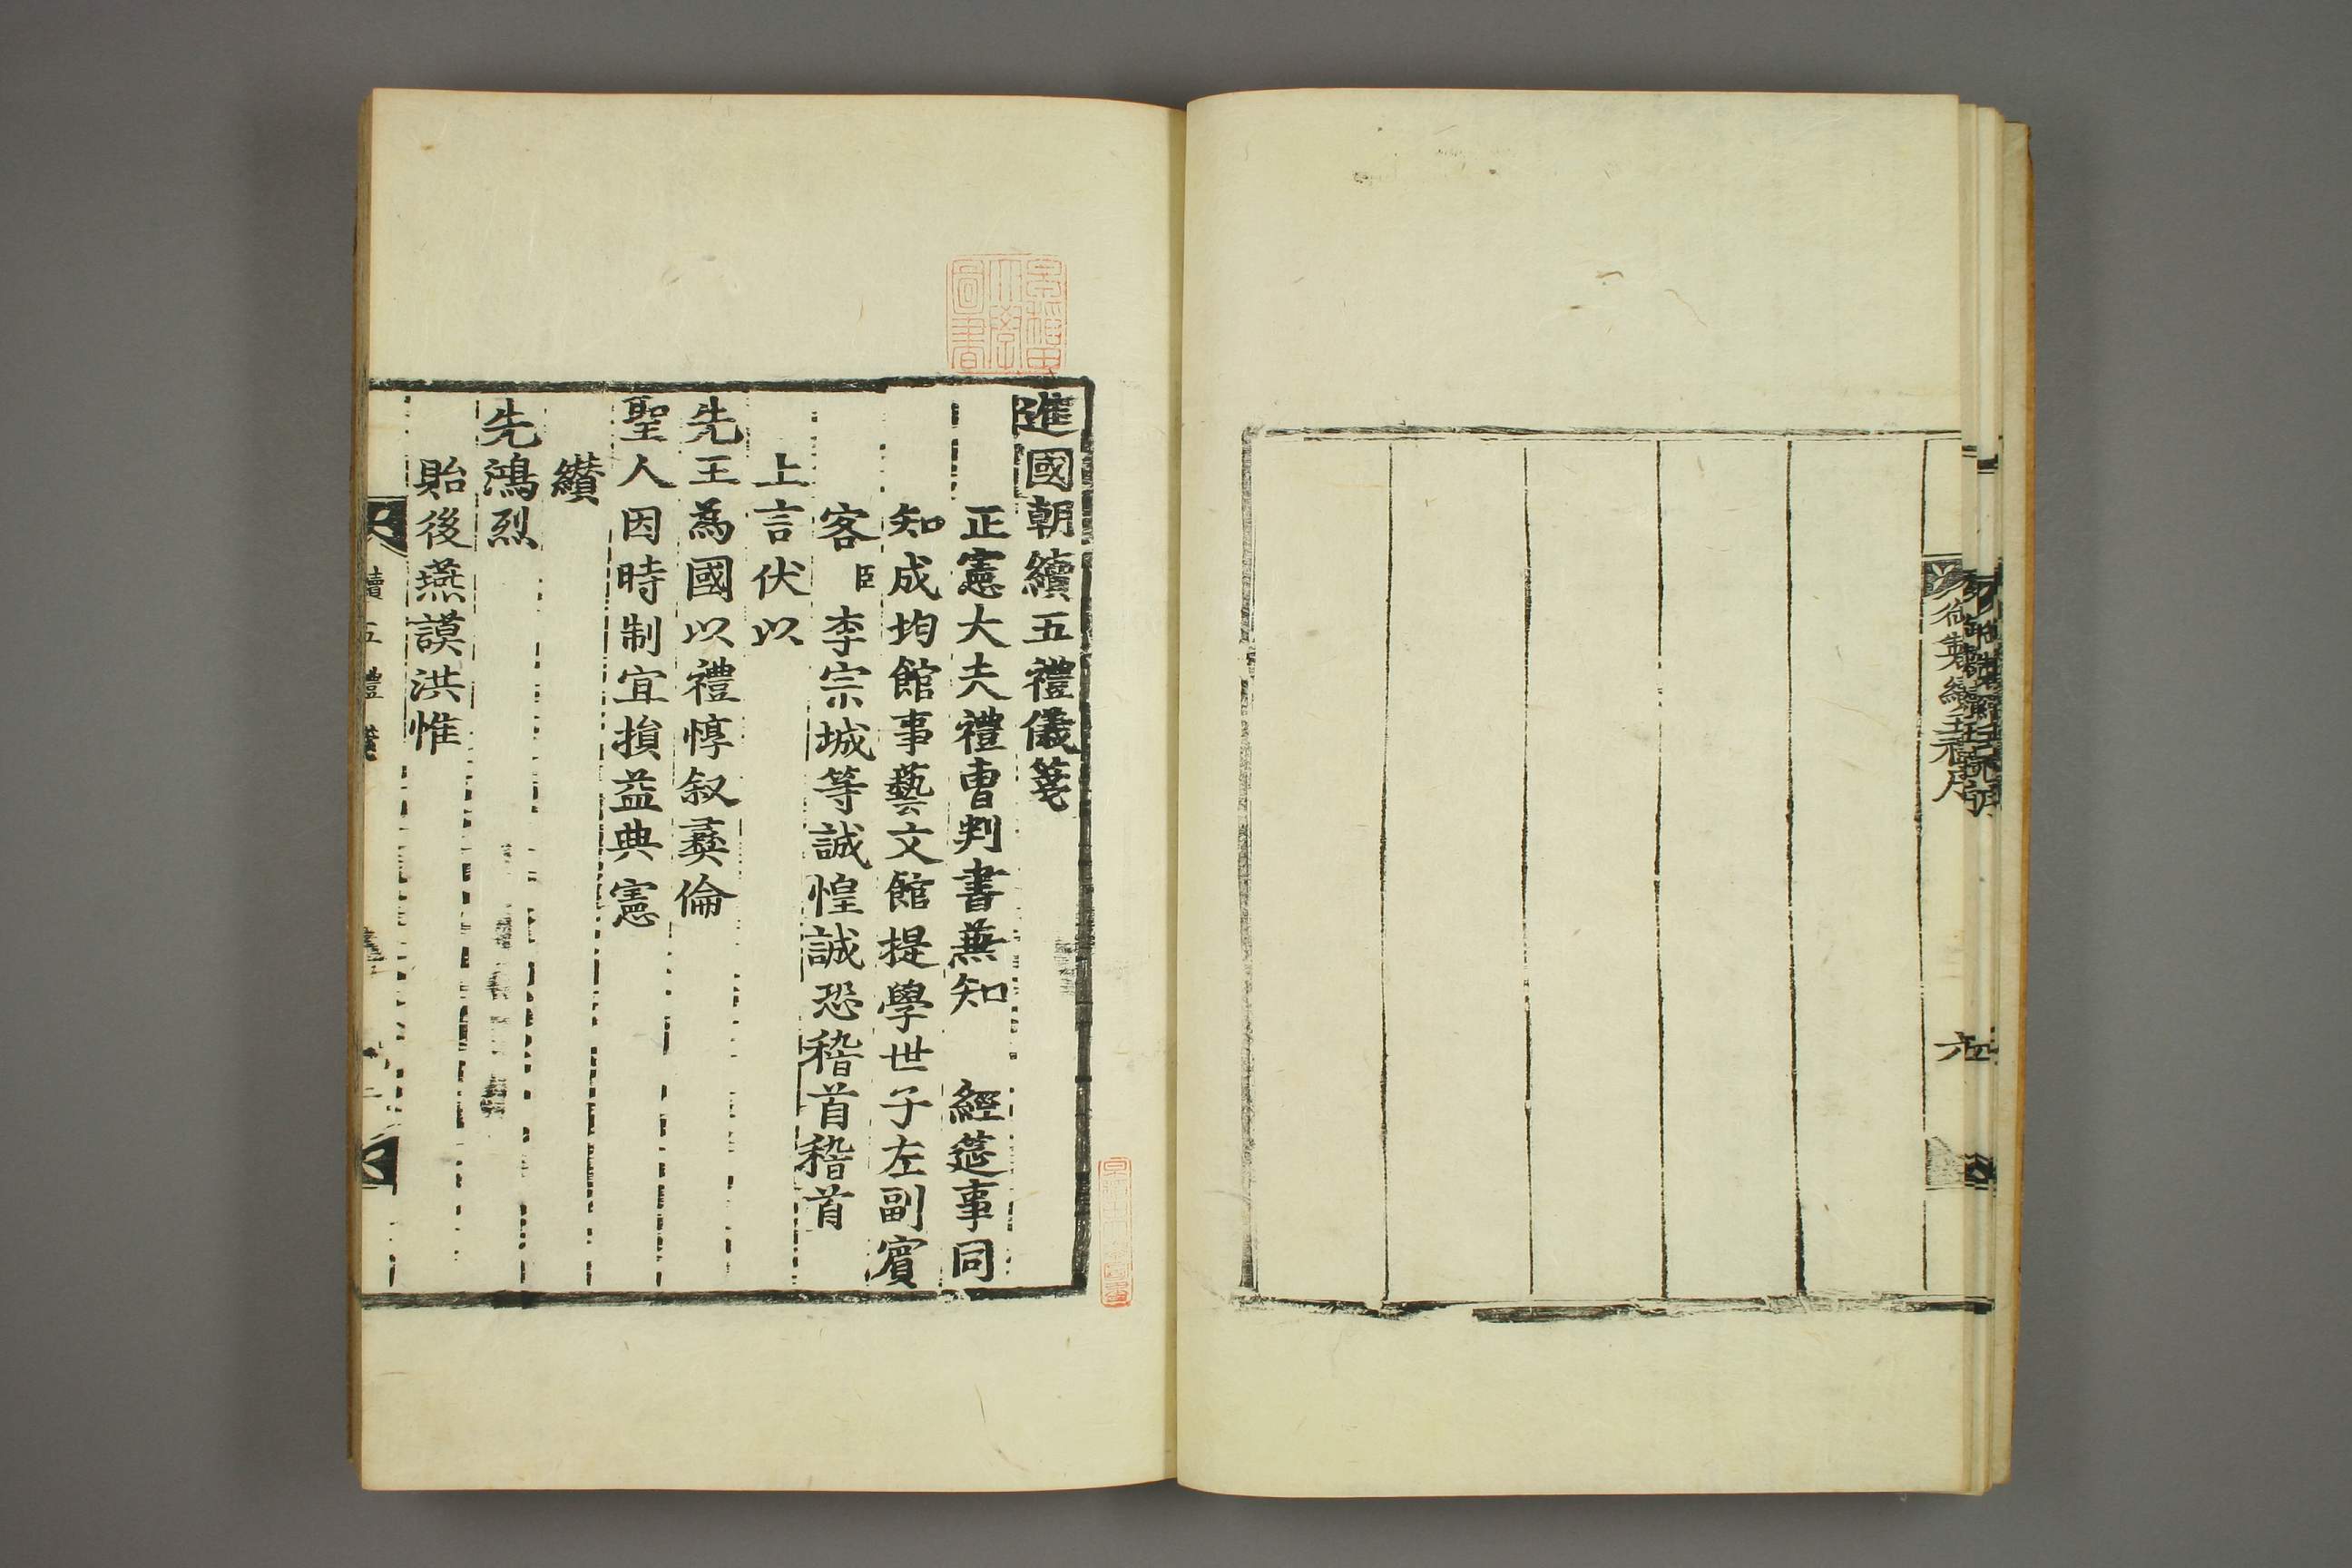 御製續五禮序
六
進國朝續五禮儀箋
正憲大夫禮曹判書蕪知 經筵事同
知成均館事藝文館提學世子左副賓
客臣李宗城等誠惶誠恐稽首稽首
上言伏以
先王為國以禮惇叙彝倫
聖人因時制宜損益典憲
纘
先鴻烈
貽後燕謨洪惟
續五禮